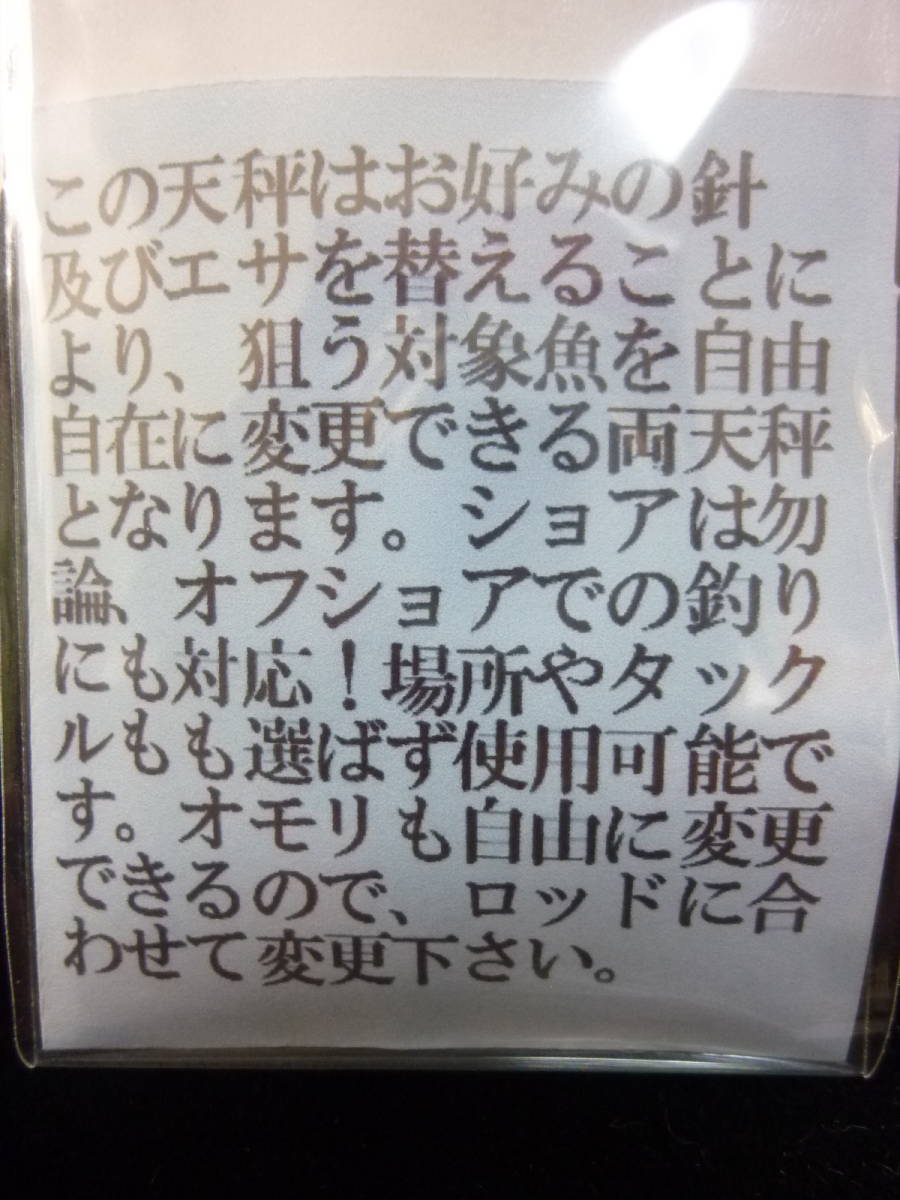 この天秤はお好みの針
及びエサを替えることに
より、狙う対象魚を自由
自在に変更できる両天秤
となります。ショアは勿
論、オフショアでの釣り
にも対応！場所やタック
ルもも選ばず使用可能で
す。オモリも自由に変更
できるので、ロッドに合
わせて変更下さい。